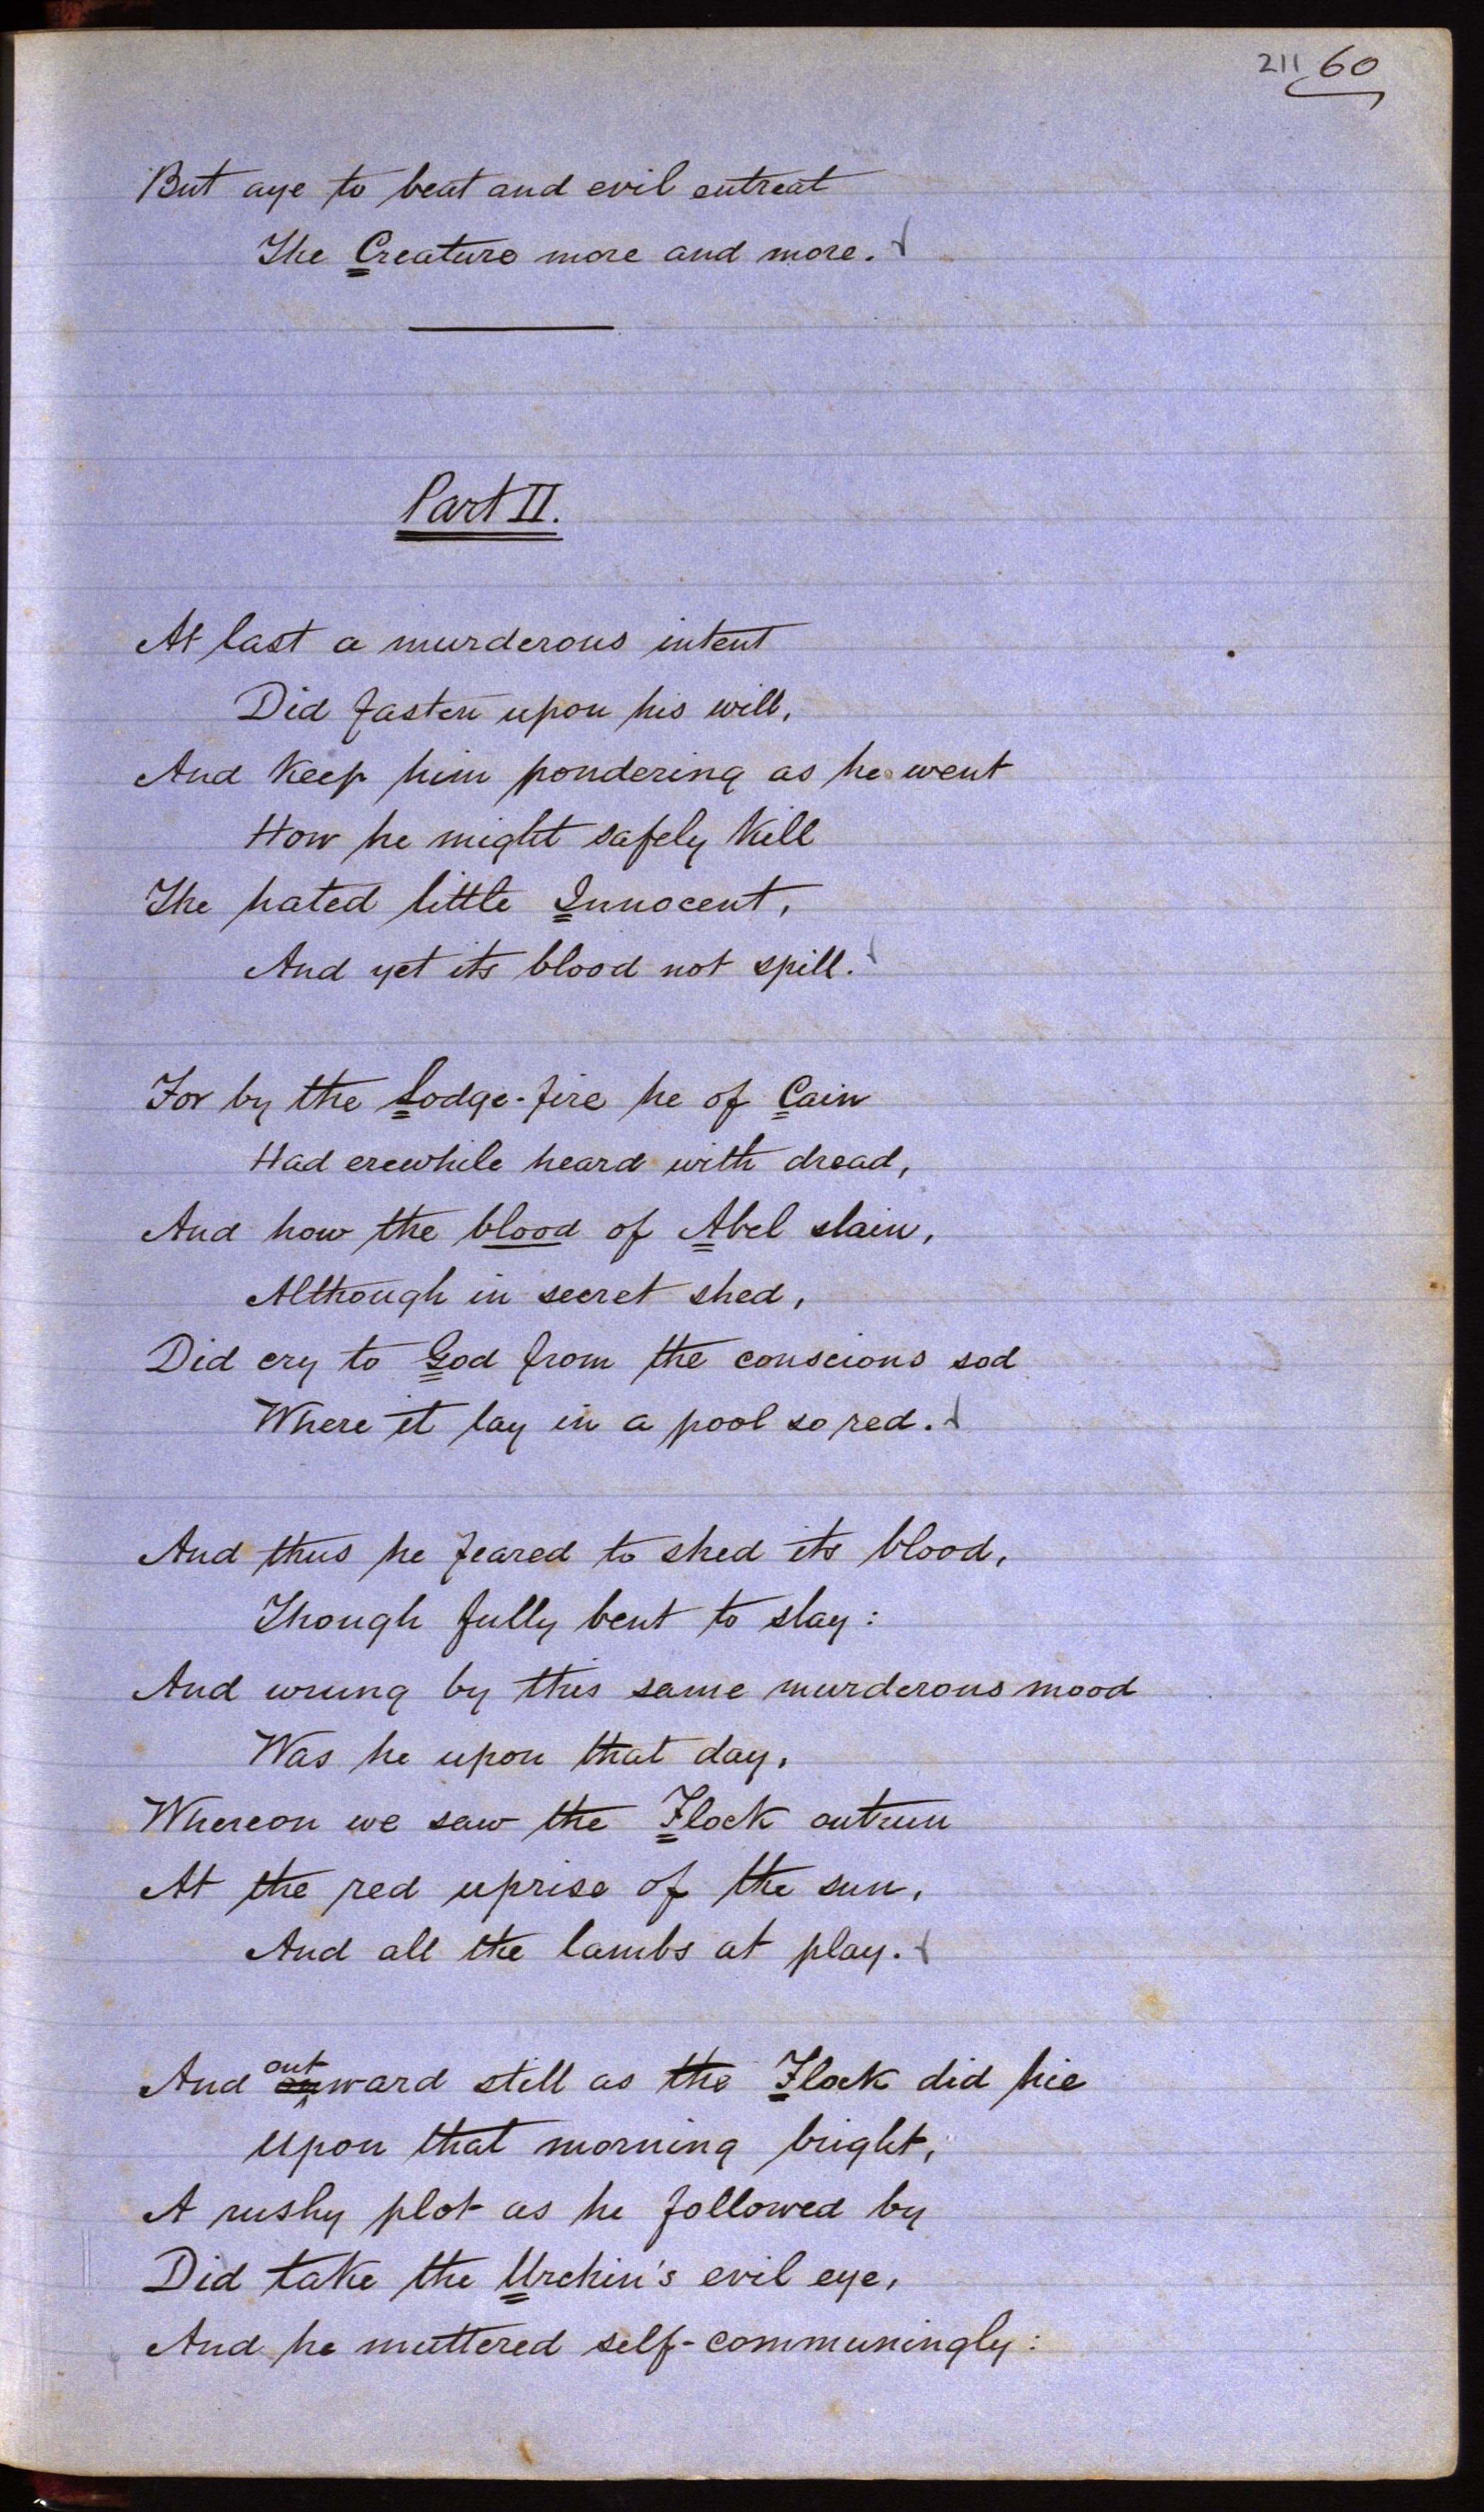 211 60
But aye to beat and evil entreat
The Creature more and more.
Part II.
At last a murderous intent
Did fasten upon his will,
And keep him pondering as he went
How he might safely kill
The hated little Innocent,
And yet its blood not spill.
For by the Lodge-fire he of Cain
Had erewhile heard with dread,
And how the blood of Abel slain,
Although in secret shed,
Did cry to God from the conscious sod
Where it lay in a pool so red.
And thus he feared to shed its blood,
Though fully bent to slay:
And wrung by this same murderous mood
Was he upon that day,
Whereon we saw the Flock outrun
At the red uprise of the sun,
And all the lambs at play.
And outward still as the Flock did hie
Upon that morning bright,
A rushy plot as he followed by
Did take the Urchin's evil eye,
And he muttered self-communingly: